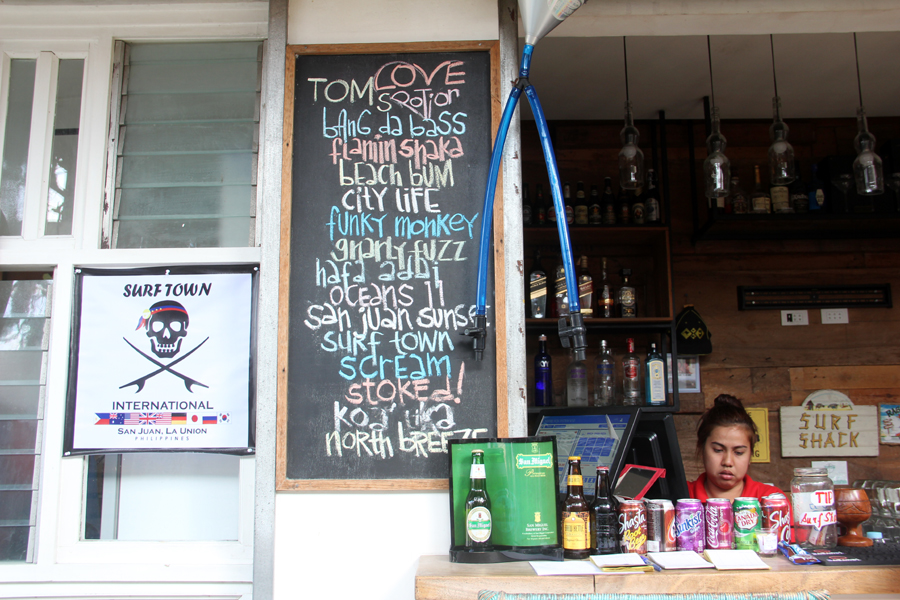 SURF TOWN
INTERNATIONAL
SAN JUAN, LA UNION
PHILIPPINES
TOM LOVE
Spotior
bang da bass
flamin shaka
beach bum
city life
funky monkey
gnarly fuzz
hafa adai
oceans 11
san juan sunse
surf town
scream
stoked!
north breeze
SURF
SHACK
San Miguel
SAN MIGUEL
BREWERY INC.
Shasta
Sunkist
CANADA
DRY
Shasta
TIP
Surf